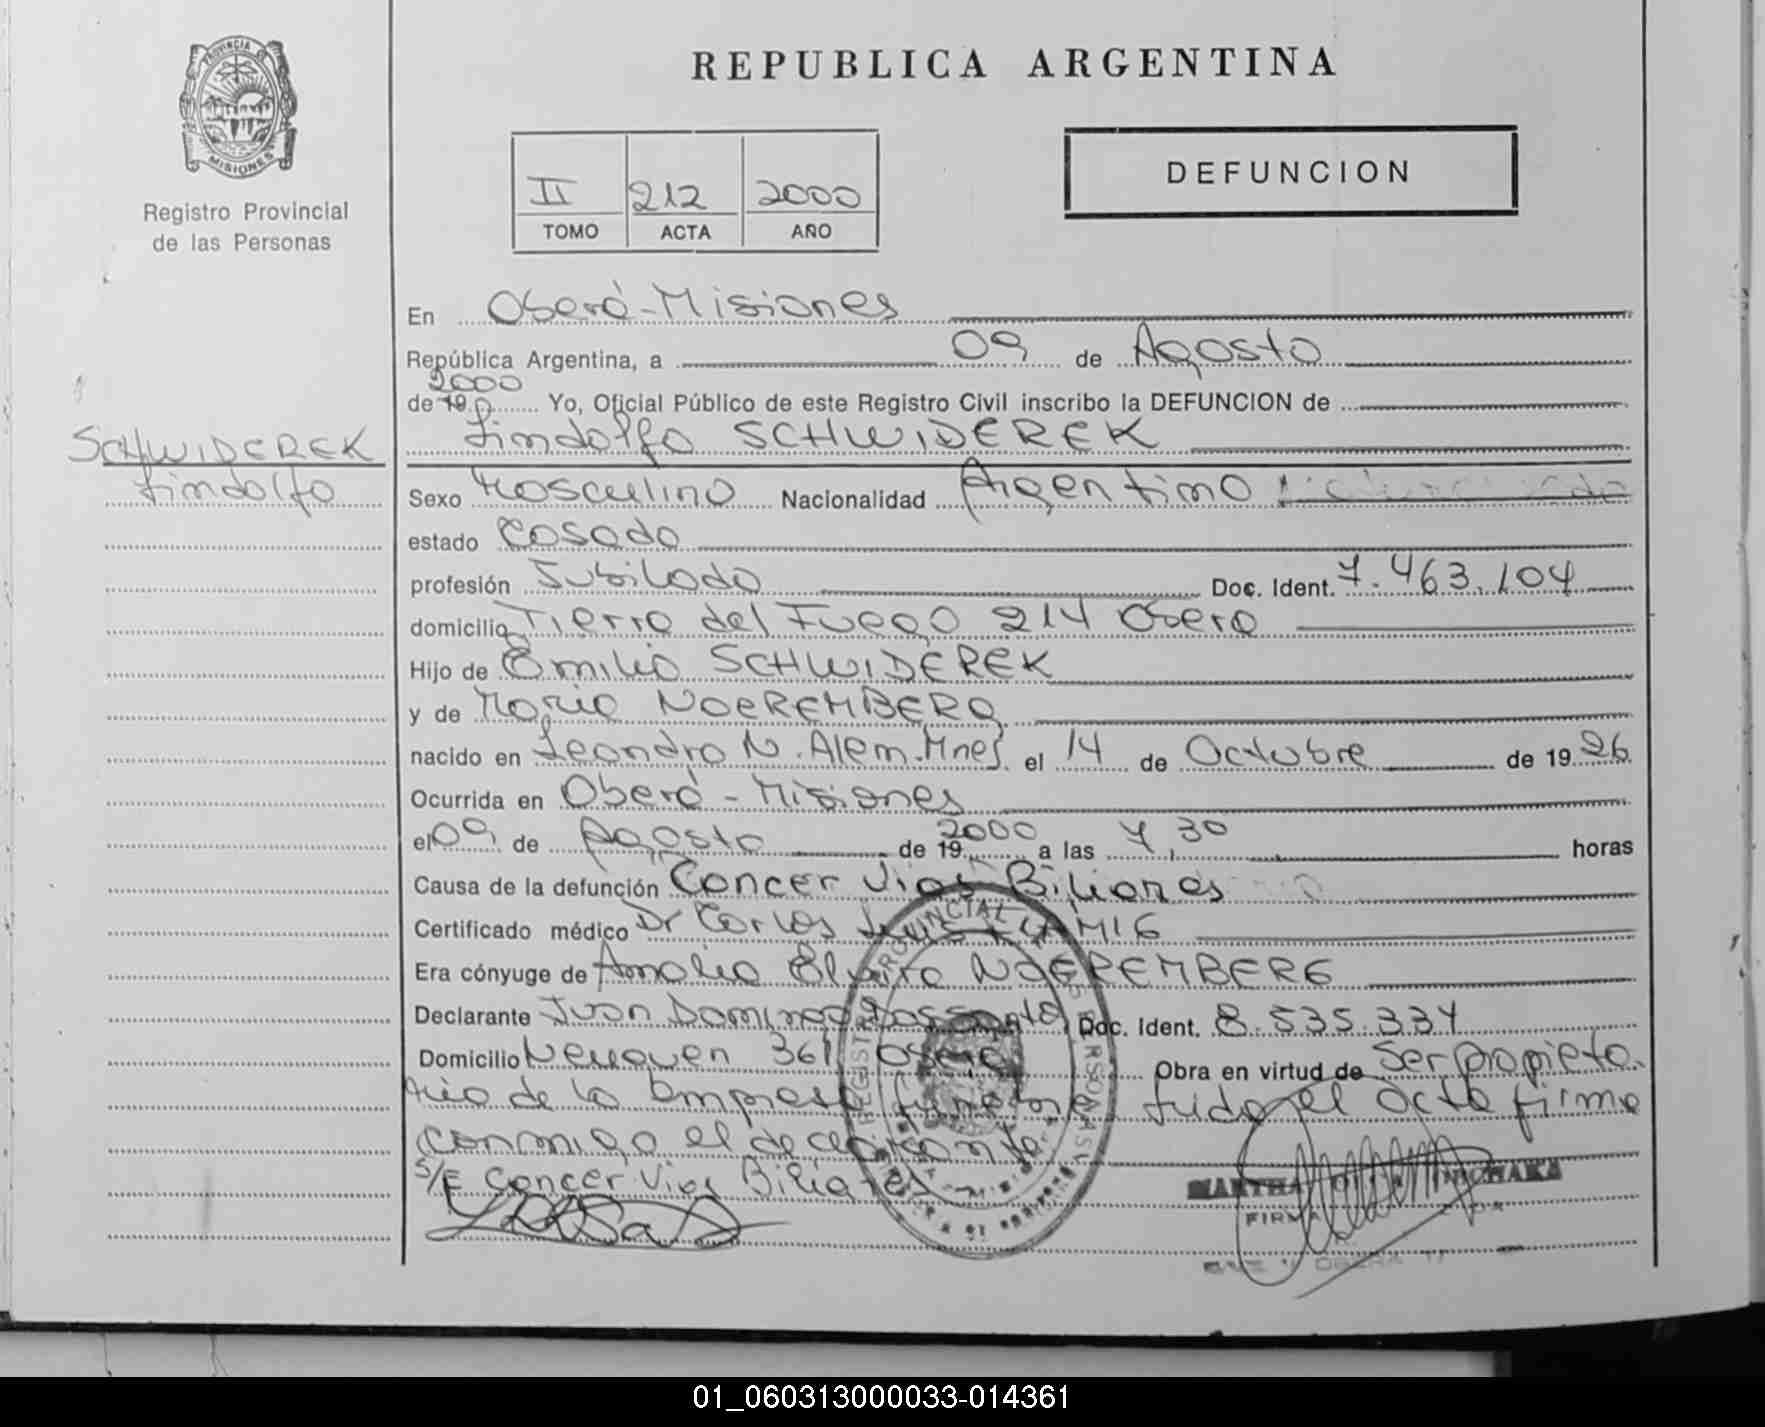 REPUBLICA ARGENTINA
PROVINCIA DE
MISIONES
Registro Provincial
de las Personas
II 212 2000
TOMO ACTA AÑO
DEFUNCION
En Oberá - Misiones
República Argentina, a 09 de Agosto
2000
de 19 Yo, Oficial Público de este Registro Civil inscribo la DEFUNCION de
Lindolfo SCHWIDEREK
SCHWIDEREK
Lindolfo
Sexo Masculino Nacionalidad Argentino
estado Casado
profesión Jubilado Doc. Ident. 7.463.104
domicilio Tierra del Fuego 214 Obera
Hijo de Emilio SCHWIDEREK
y de Maria NOEREMBERG
nacido en Leandro N. Alem. Mnes. el 14 de Octubre de 1926
Ocurrida en Oberá - Misiones
el 09 de Agosto de 19 2000 a las 7,30 horas
Causa de la defunción Cancer Vias Biliares
Certificado médico Dr Carlos Luis
Era cónyuge de Amalia Elvira NOEREMBERG
Declarante Juan Domingo Dos Santos Doc. Ident. 8.535.334
Domicilio Neuquen 361 Obera Obra en virtud de Ser propieta-
rio de la Empresa funebre Leida el acta firma
conmigo el declarante
S/E Cancer Vias Biliares
REGISTRO PROVINCIAL DE LAS PERSONAS
MARTHA
FIRMA
OBERA
01_060313000033-014361